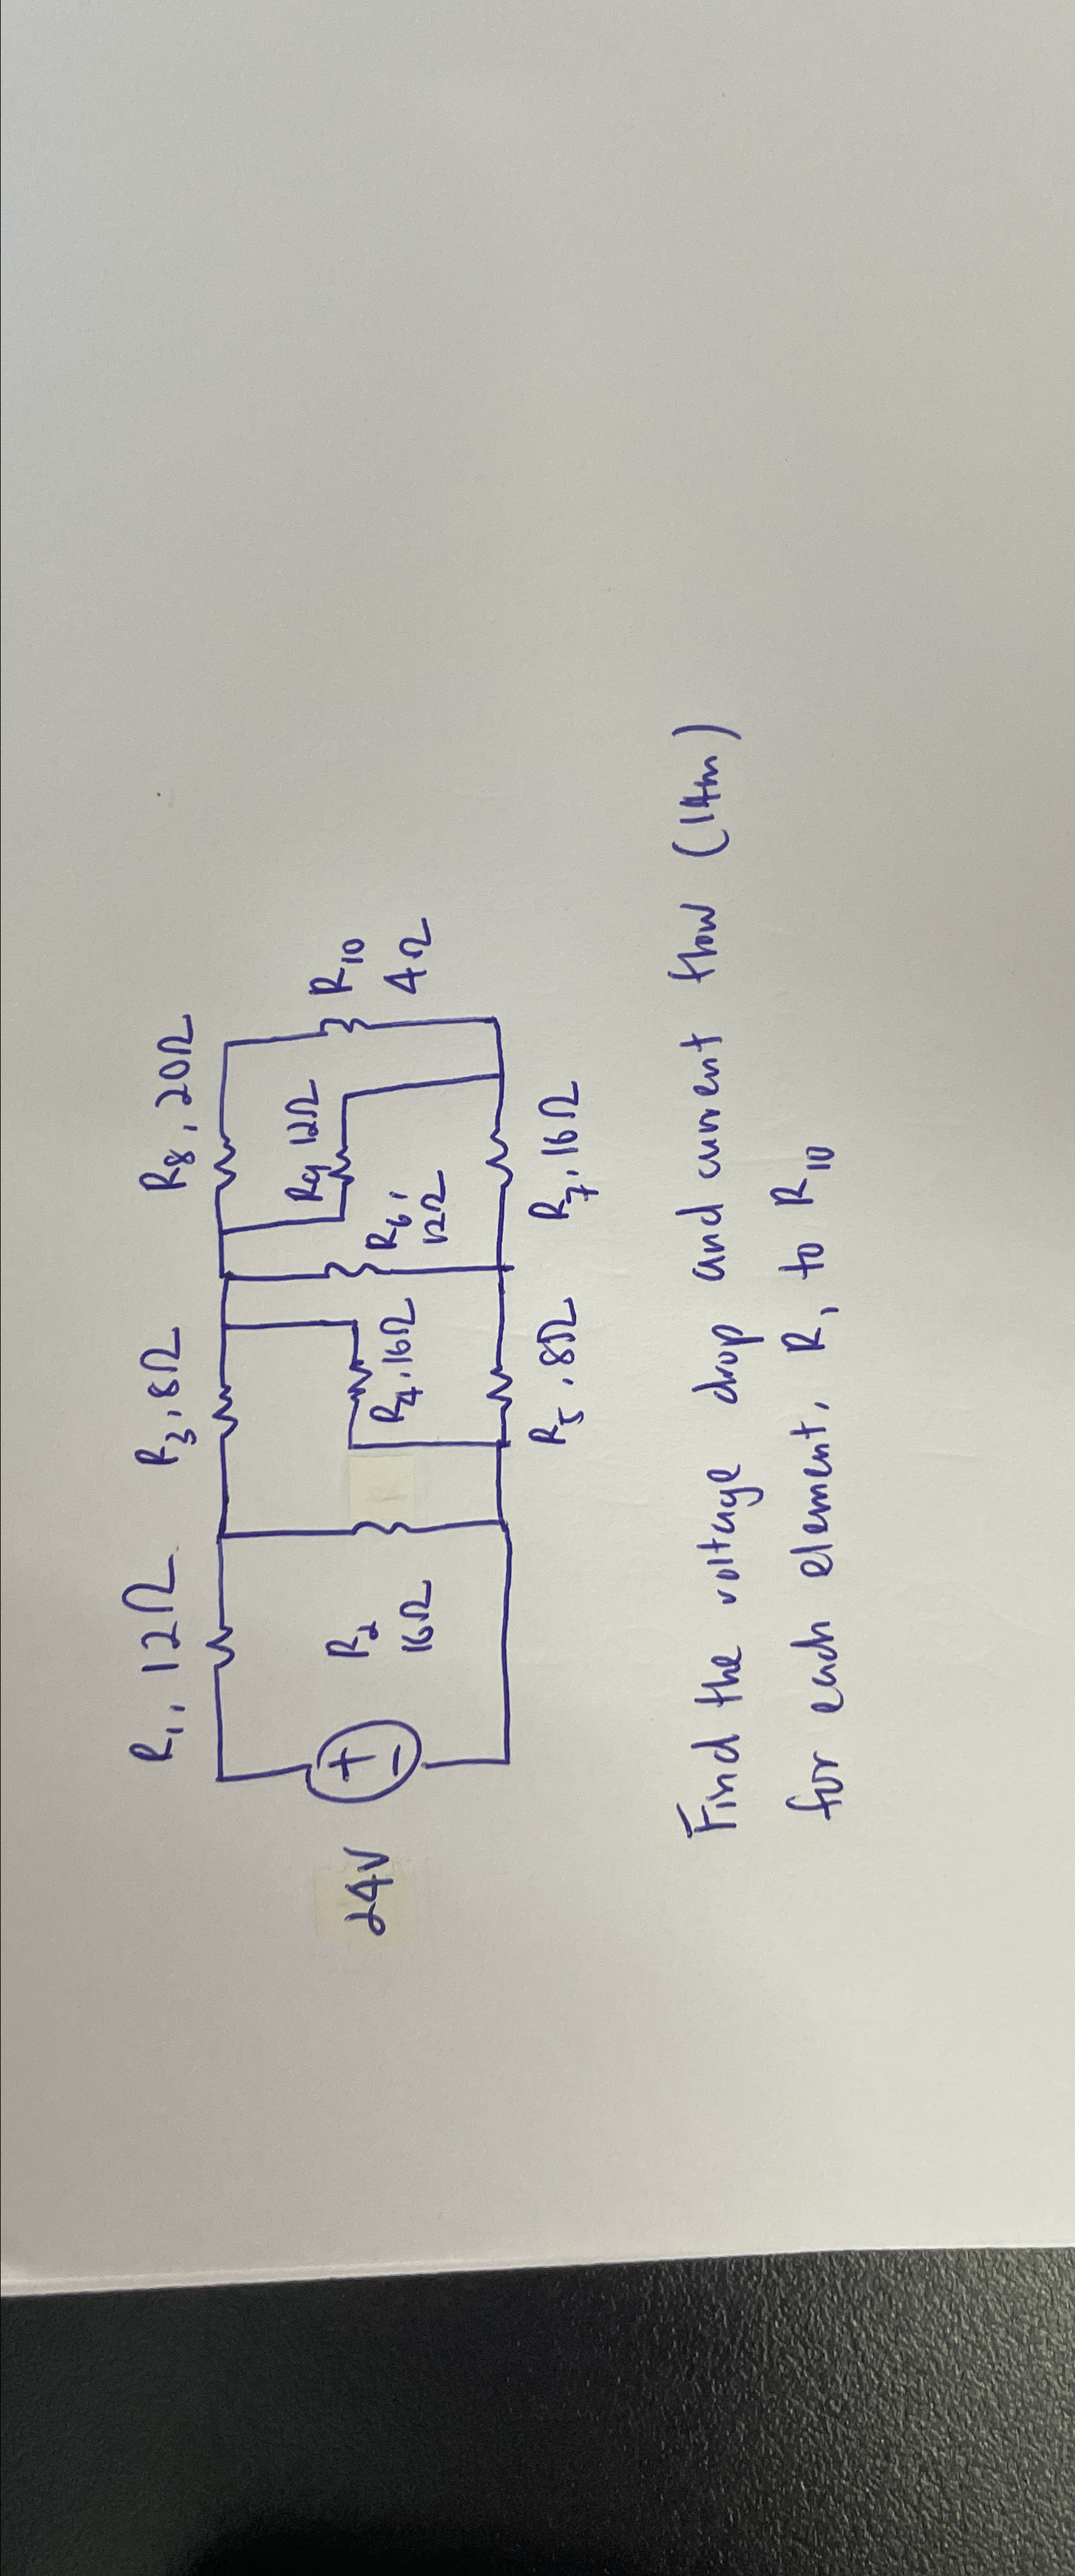 R1, 12Ω
R3, 8Ω
R8, 20Ω
24V
+
-
R2
16Ω
R4, 16Ω
R6,
12Ω
R9 12Ω
R10
4Ω
R5, 8Ω
R7, 16Ω
Find the voltage drop and current flow (14m)
for each element, R1 to R10